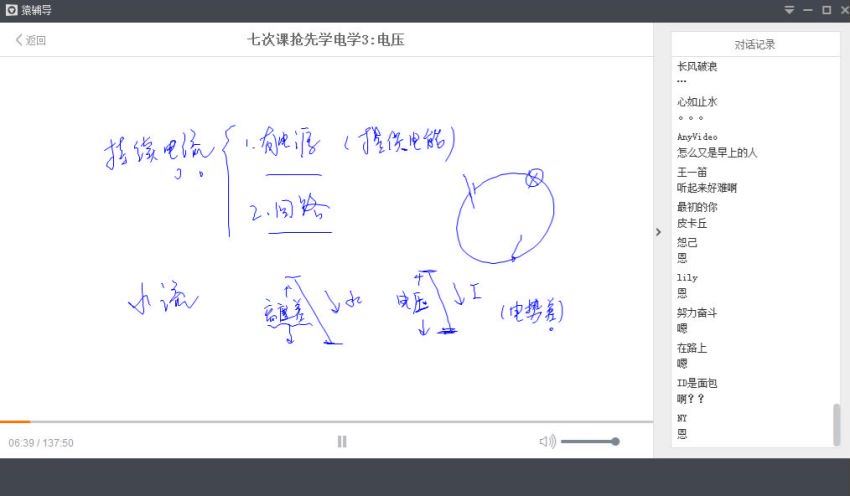 猿辅导
返回
七次课抢先学电学3:电压
持续电流
1.有电源 (提供电能)
2.回路
水流
高度差
水
电压
I
(电势差)
06:39 / 137:50
对话记录
长风破浪
...
心如止水
。。。
AnyVideo
怎么又是早上的人
王一笛
听起来好难啊
最初的你
皮卡丘
恕己
恩
lily
恩
努力奋斗
嗯
在路上
嗯
ID是面包
啊？？
NY
恩